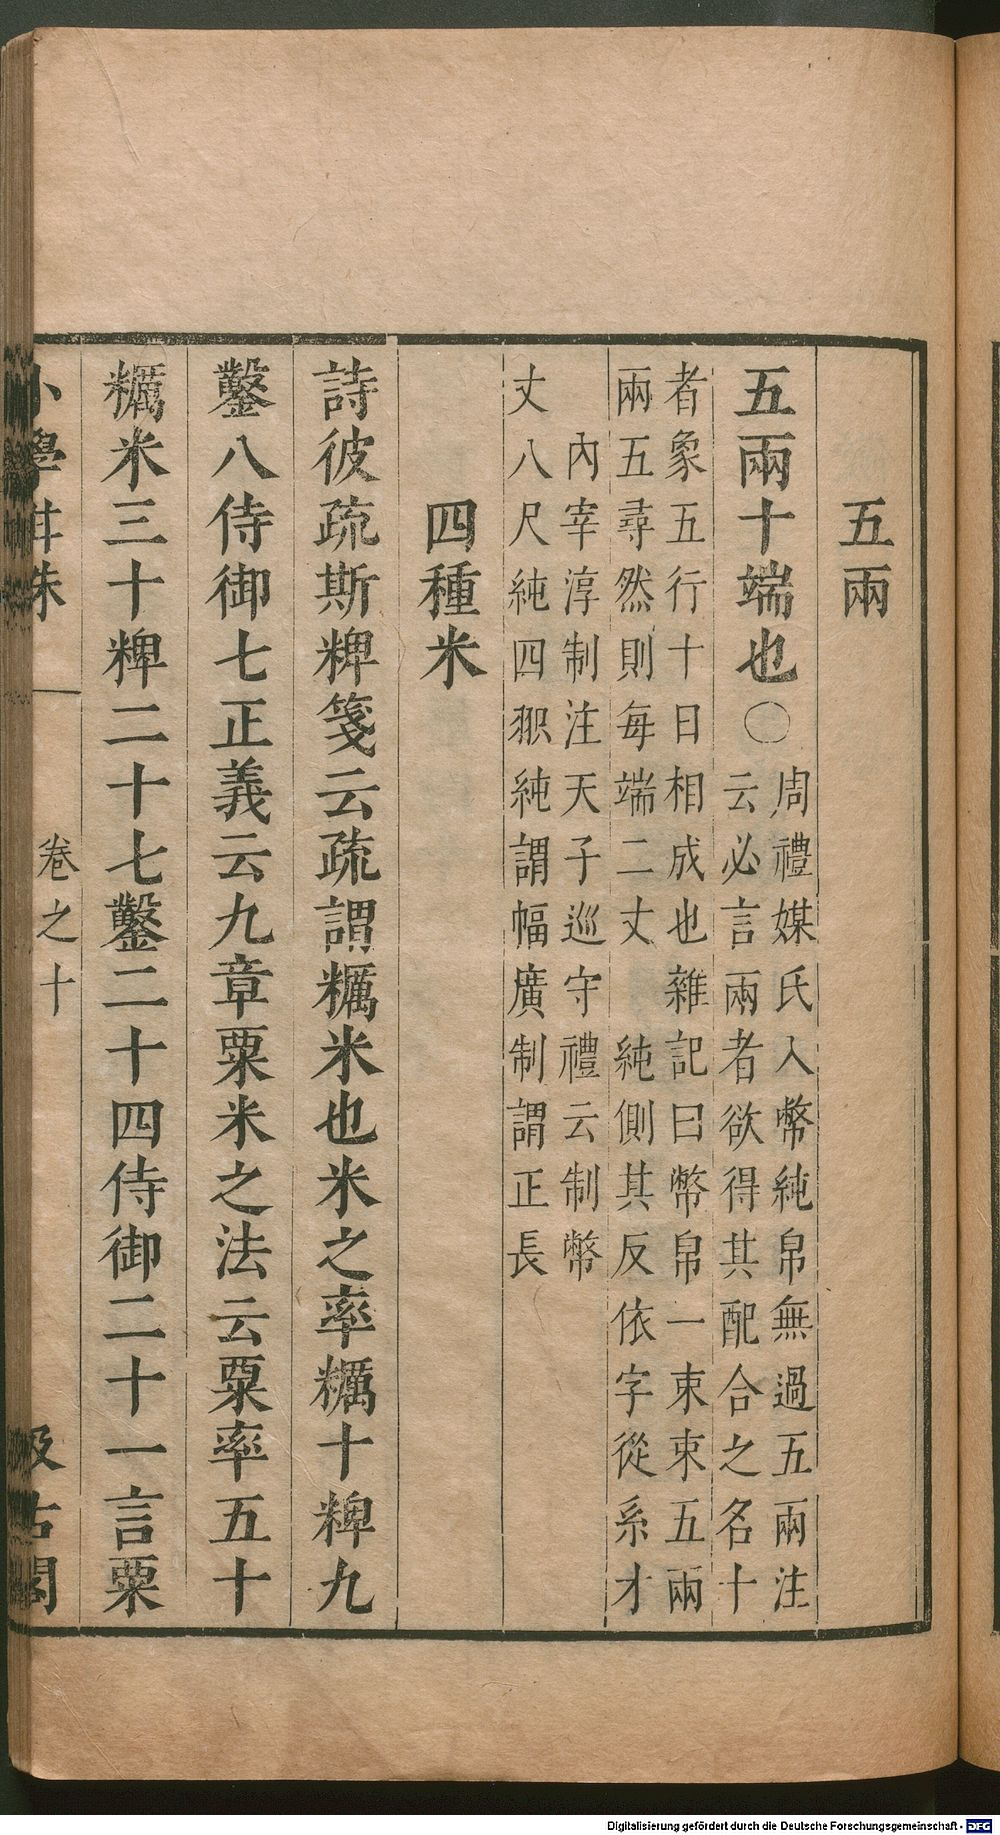 五兩
五兩十端也○
周禮媒氏入幣純帛無過五兩注
云必言兩者欲得其配合之名十
者象五行十日相成也雜記曰幣帛一束束五兩
兩五尋然則每端二丈 純側其反依字從系才
內宰淳制注天子巡守禮云制幣
丈八尺純四𦐖純謂幅廣制謂正長
四種米
詩彼疏斯粺箋云疏謂糲米也米之率糲十粺九
鑿八侍御七正義云九章粟米之法云粟率五十
糲米三十粺二十七鑿二十四侍御二十一言粟
小學紺珠
卷之十
汲古閣
Digitalisierung gefördert durch die Deutsche Forschungsgemeinschaft - DFG